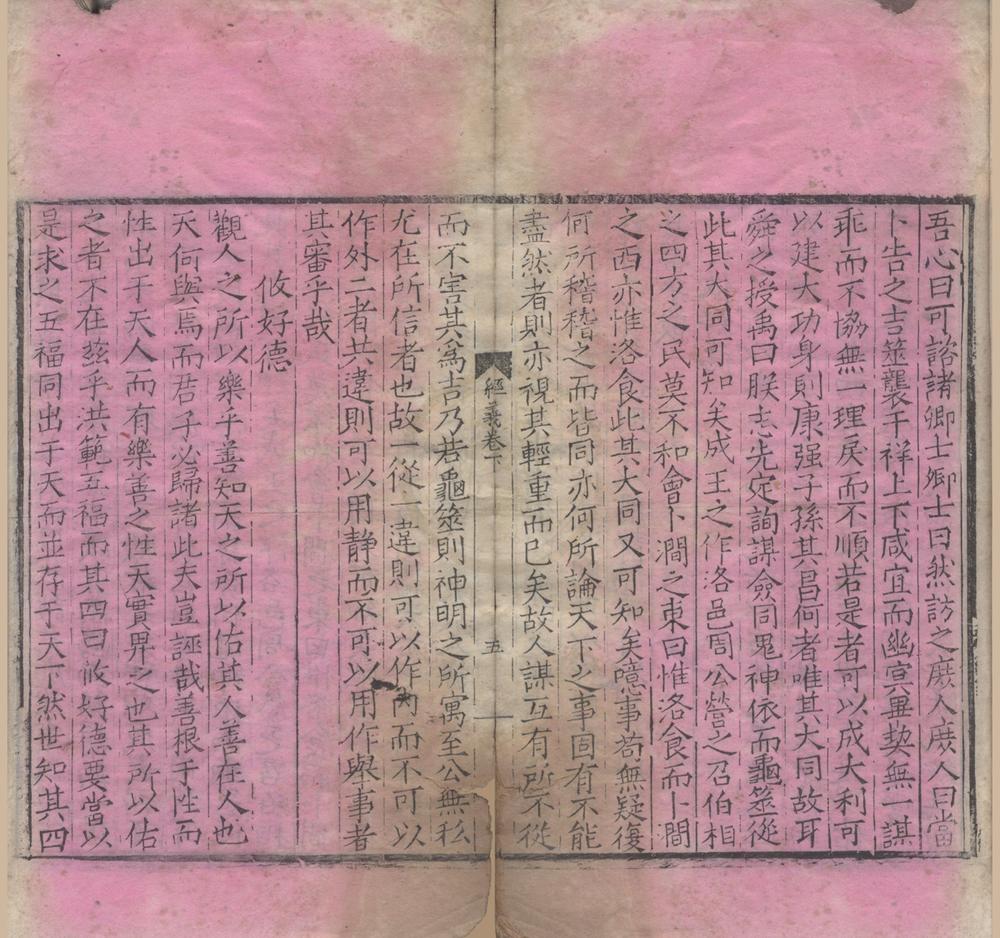 吾心曰可諮諸卿士卿士曰然訪之庶人庶人曰當
卜告之吉筮襲于祥上下咸宜而幽冥畢契無一謀
乖而不協無一理戾而不順若是者可以成大利可
以建大功身則康强子孫其昌何者唯其大同故耳
舜之授禹曰朕志先定詢謀僉同鬼神依而龜筮從
此其大同可知矣成王之作洛邑周公營之召伯相
之四方之民莫不和會卜澗之東曰惟洛食而卜澗
之西亦惟洛食此其大同又可知矣噫事苟無疑復
何所稽稽之而皆同亦何所論天下之事固有不能
盡然者則亦視其輕重而已矣故人謀互有所不從
經義卷下
五
而不害其為吉乃若龜筮則神明之所寓至公無私
尤在所信者也故一從一違則可以作內而不可以
作外二者共違則可以用静而不可以用作與事者
其審乎哉
攸好德
觀人之所以樂乎善知天之所以佑其人善在人也
天何與焉而君子必歸諸此夫豈誣哉善根于性而
性出于天人而有樂善之性天實畀之也其所以佑
之者不在兹乎洪範五福而其四曰攸好德要當以
是求之五福同出于天而並存于天下然世知其四